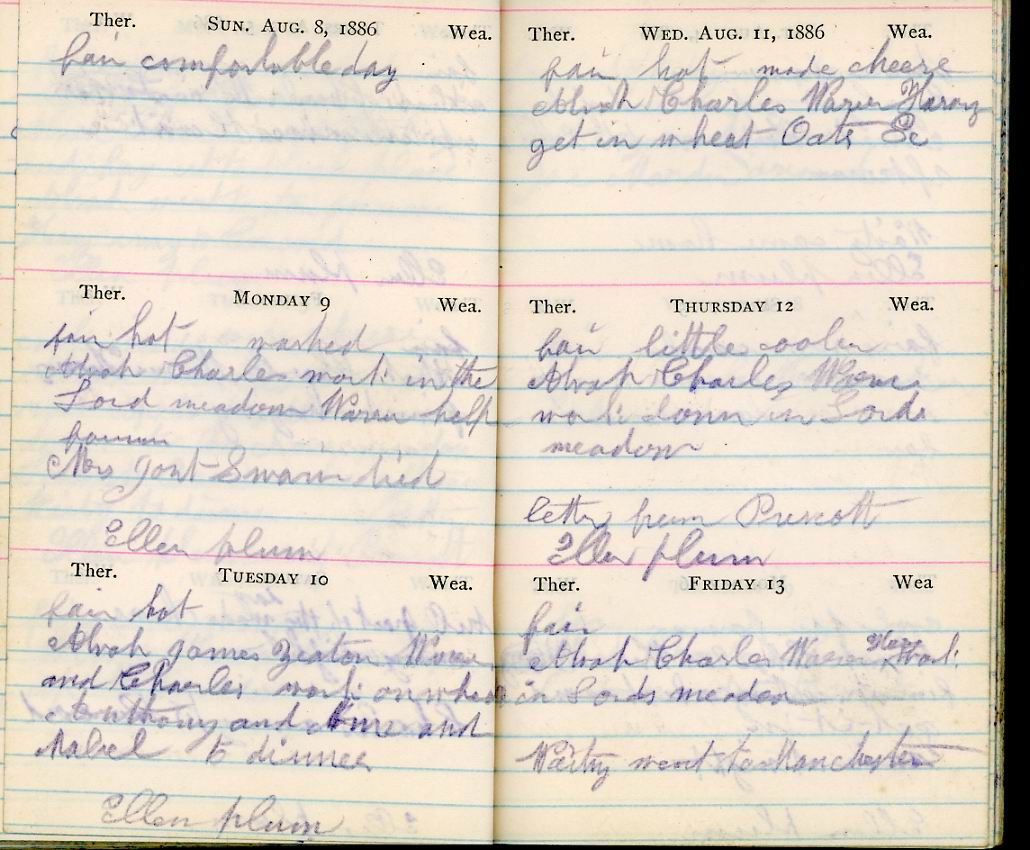 Ther. SUN. AUG. 8, 1886 Wea.
fair comfortable day
Ther. MONDAY 9 Wea.
fair hot washed
Alvah Charles work in the
Lord meadow Waren help
Mrs Swain died
Ellen plum
Ther. TUESDAY 10 Wea.
fair hot
Alvah James Zeaton
and Charles work on wheat
Anthony and and
Mabel to dinner
Ellen plum
Ther. WED. AUG. 11, 1886 Wea.
fair hot made cheese
Alvah Charles Waren
get in wheat Oats &c
Ther. THURSDAY 12 Wea.
fair little cooler
Alvah Charles
work down in Lords
meadow
letter from Prescott
Ellen plum
Ther. FRIDAY 13 Wea
fair
Alvah Charles Waren work
in Lords meadow
went to Manchester